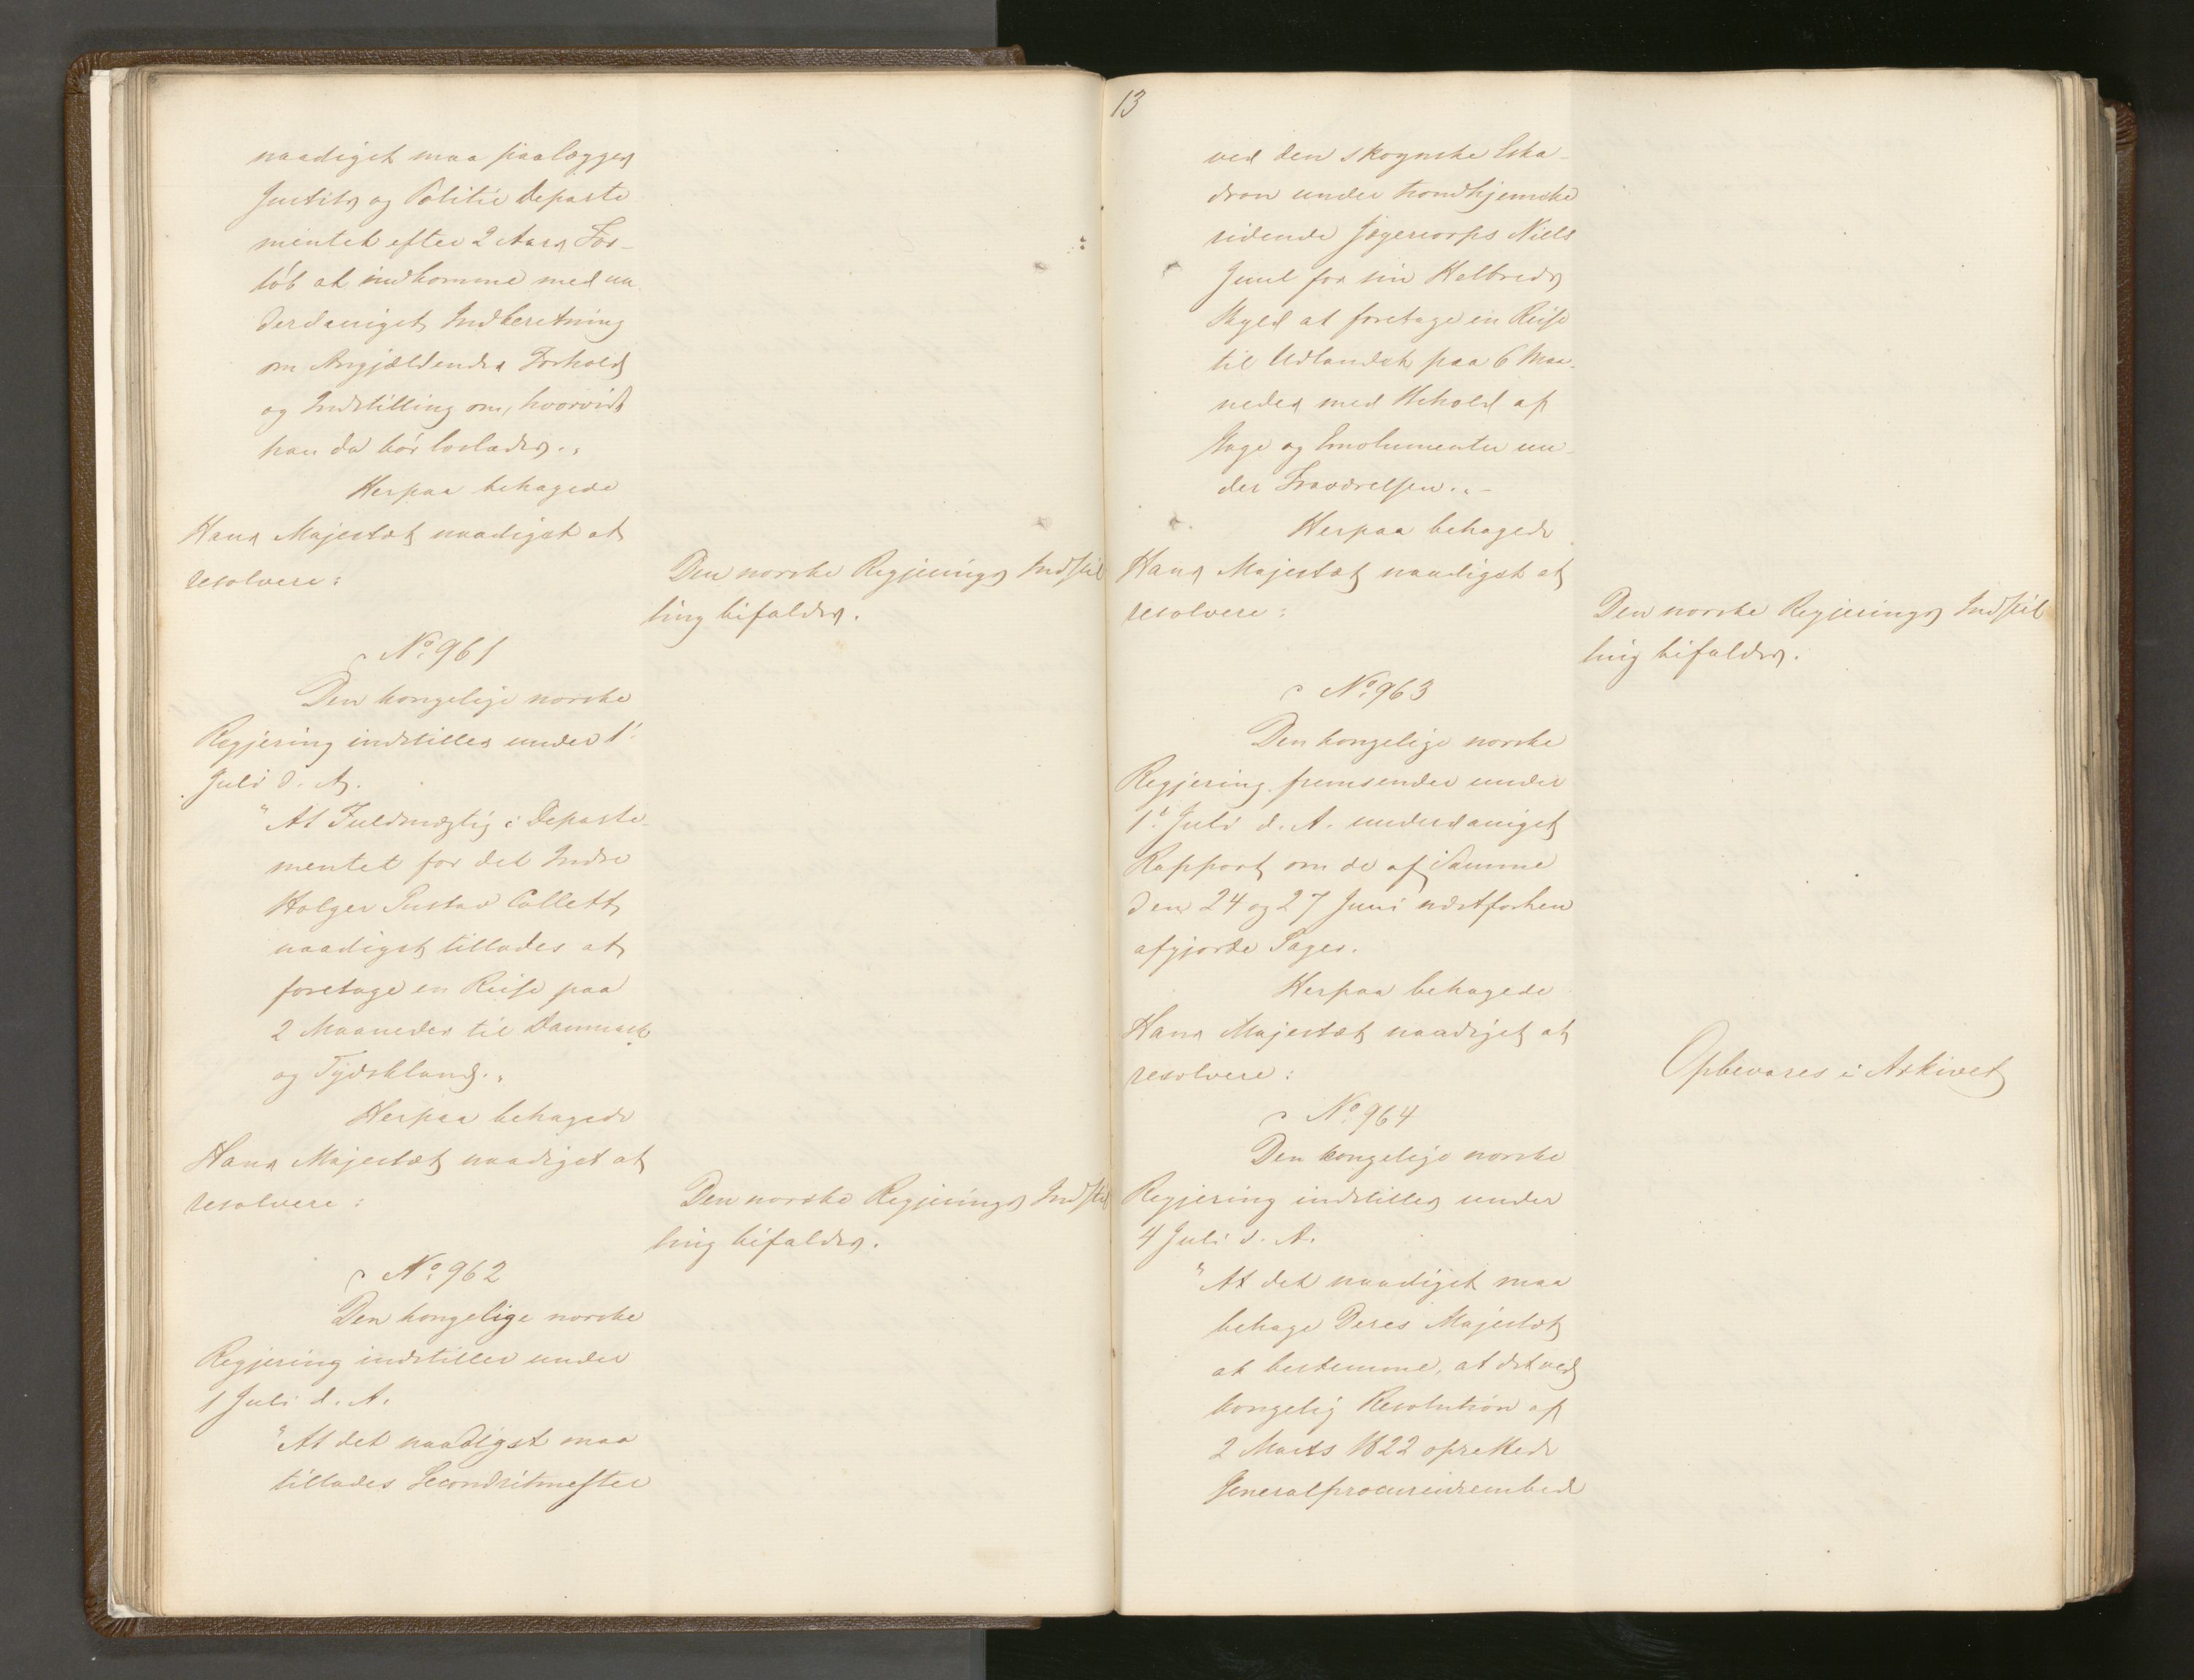 naadigst maa paalægges
Justits og Politie Departe
mentet efter 2 Aars For-
løb at indkomme med un
derdanigst Indberetning
om Angjældendes Forhold
og Indstilling om, hvorvidt
han da bør løslades.„
Herpaa behagede
Hans Majestæt naadigst at
resolvere:
Den norske Regjerings Indstil
ling bifaldes.
No. 961
Den kongelige norske
Regjering indstiller under 1.
Juli d. A.
"At Fuldmægtig i Departe-
mentet for det Indre
Holger Gustav Collett
naadigst tillades at
foretage en Reise paa
2 Maaneder til Danmark
og Tydskland.„
Herpaa behagede
Hans Majestæt naadigst at
resolvere:
Den norske Regjerings Indstil
ling bifaldes.
No. 962
Den kongelige norske
Regjering indstiller under
1 Juli d. A.
"At det naadigst maa
tillades Secondritmester
13
ved den skognske Eska-
dron under trondhjemske
ridende Jægercorps Niels
Juul for sin Helbreds
Skyld at foretage en Reise
til Udlandet paa 6 Maa-
neder med Behold af
Gage og Emolumenter un-
der Fraværelsen.„-
Herpaa behagede
Hans Majestæt naadigst at
resolvere:
Den norske Regjerings Indstil
ling bifaldes.
No. 963
Den kongelige norske
Regjering fremsender under
1. Juli d. A. underdanigst
Rapport om de af Samme
den 24 og 27 Juni næstforhen
afgjorte Sager.
Herpaa behagede
Hans Majestæt naadigst at
resolvere:
Opbevares i Arkivet
No. 964
Den kongelige norske
Regjering indstiller under
4 Juli d. A.
"At det naadigst maa
behage Deres Majestæt
at bestemme, at det ved
kongelig Resolution af
2 Marts 1822 oprettede
Generalprocureurembede